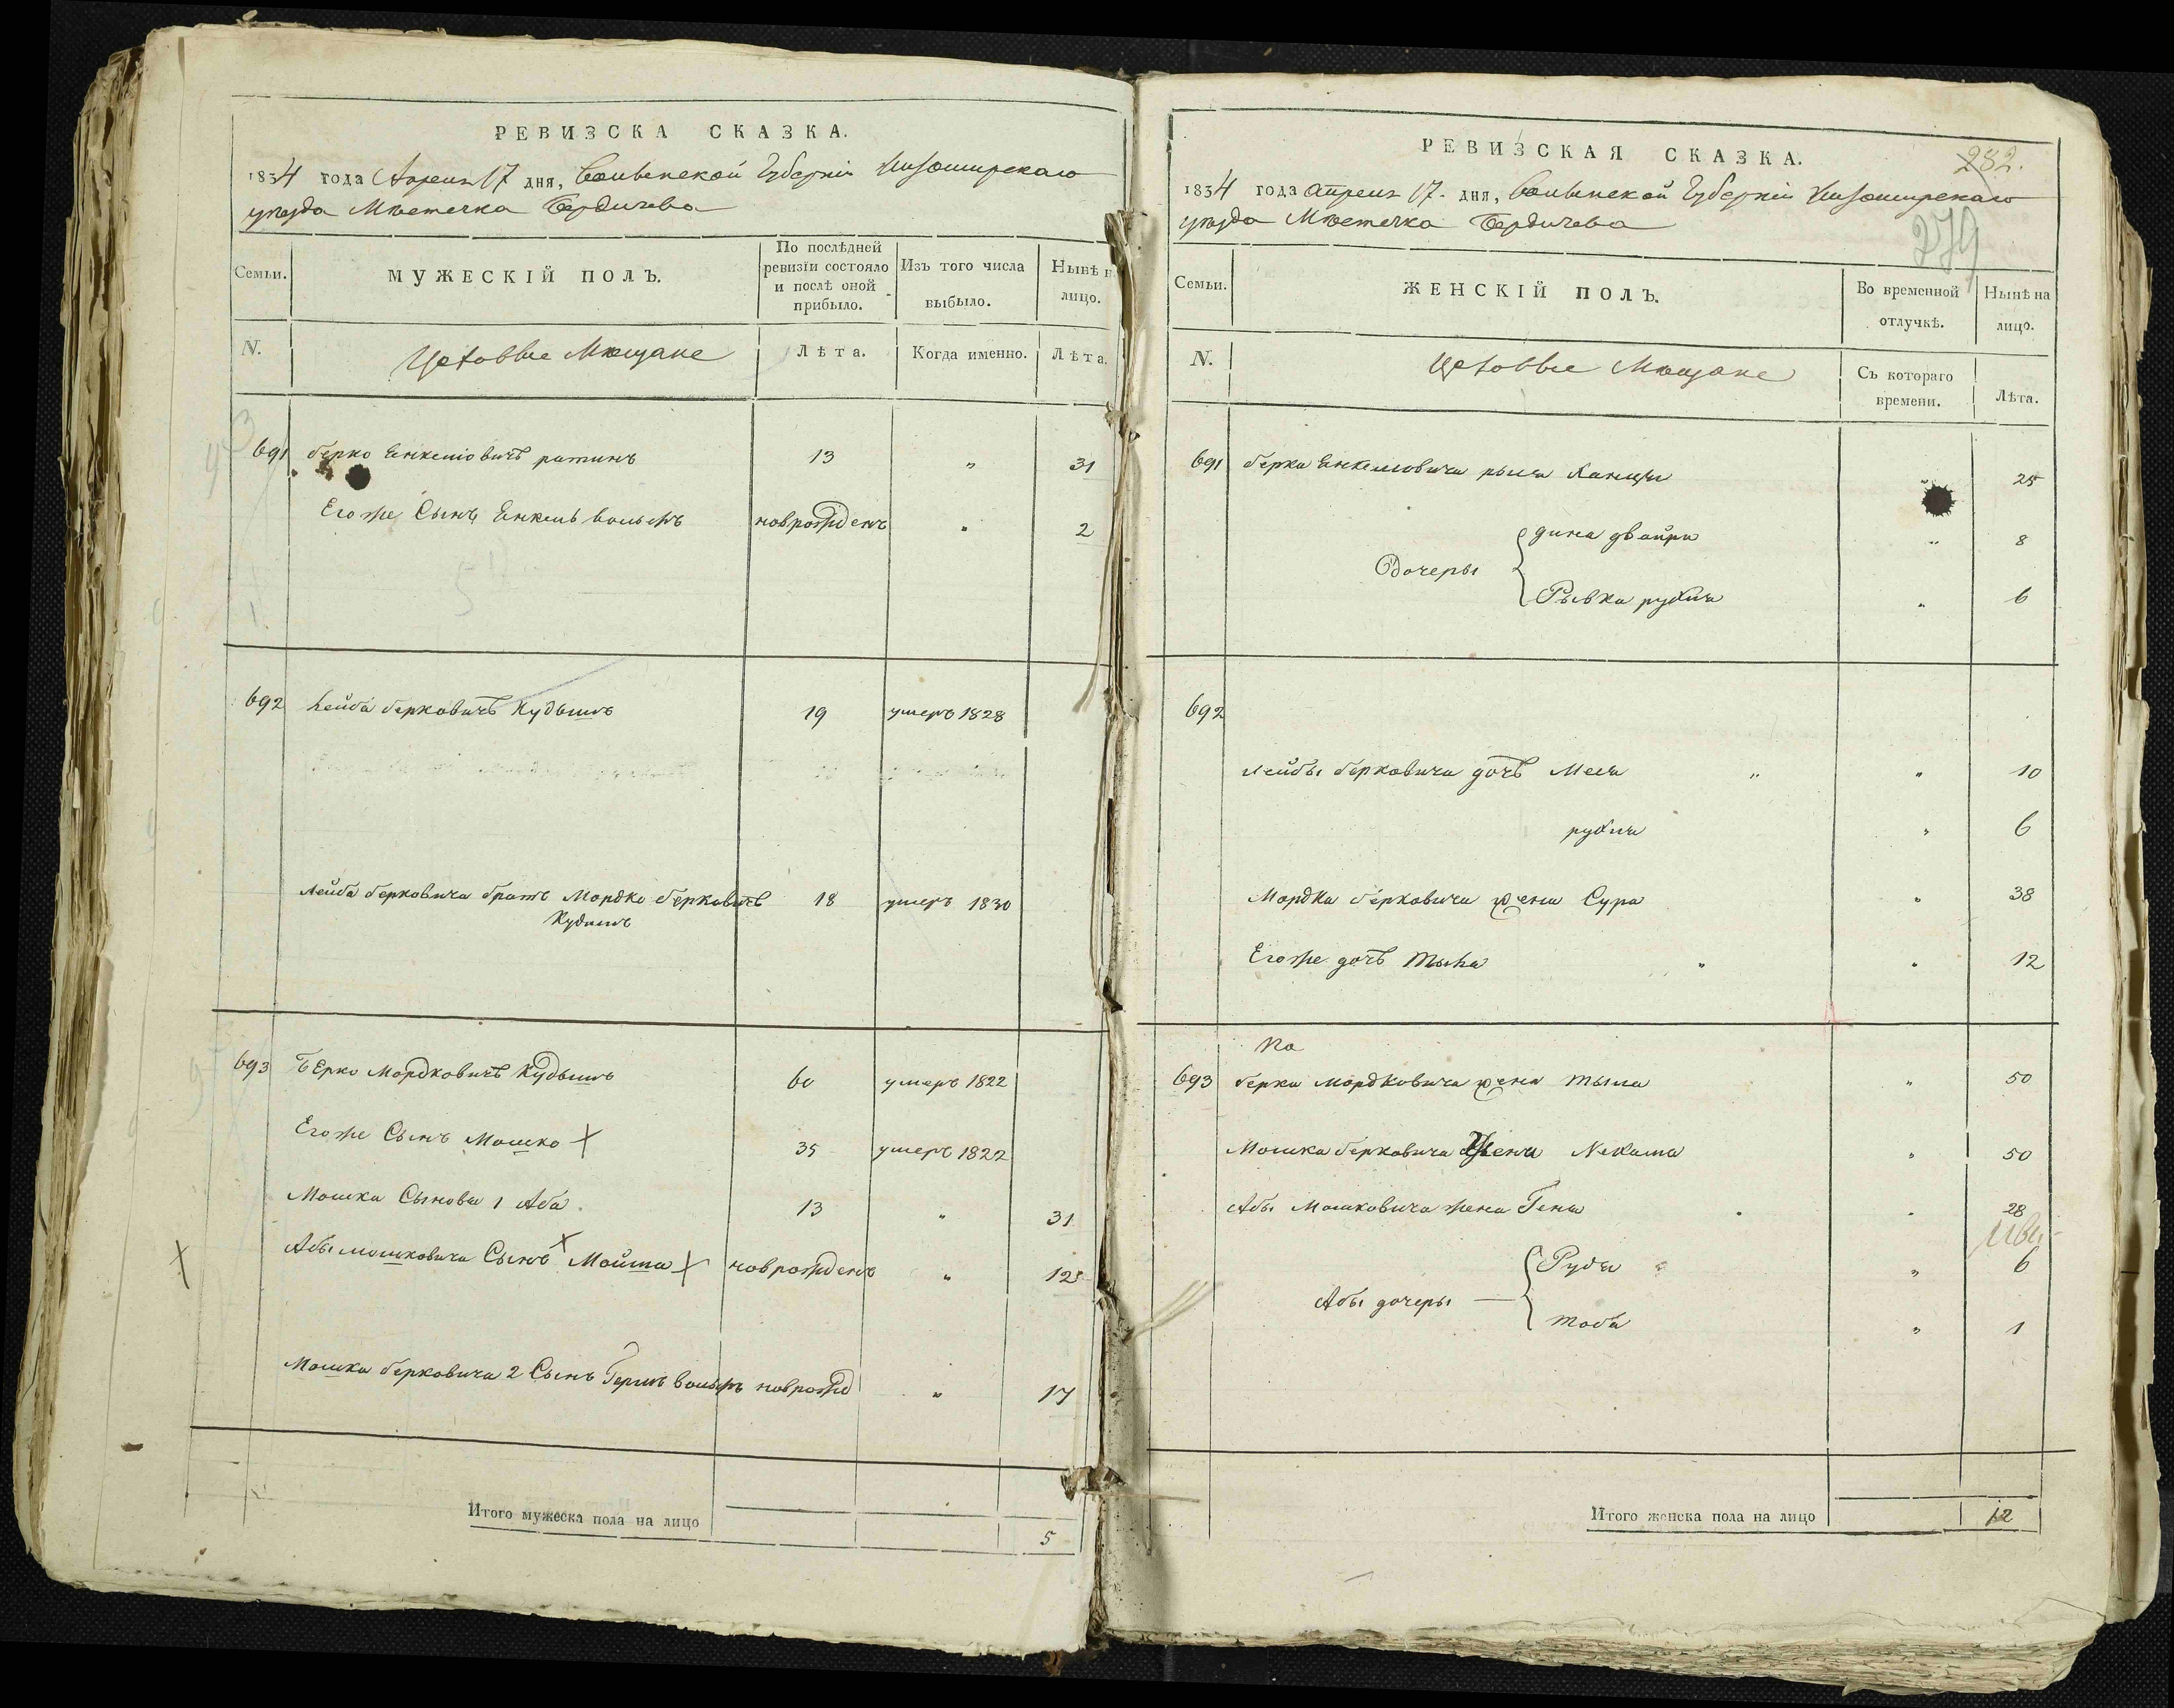 РЕВИЗСКА СКАЗКА.
1834 года Апреля 17 дня, Волынской Губерніи Житомирскаго
уезда Мѣстечка Бердичева
Семьи.
МУЖЕСКІЙ ПОЛЪ.
По послѣдней
ревизіи состояло
и послѣ оной
прибыло.
Изъ того числа
выбыло.
Нынѣ н
лицо.
N.
Цеховые Мещане
Лѣта.
Когда именно.
Лѣта.
691 берко Енкелiовичъ ратинъ 13 " 31
Его же Сынъ Енкель вольфъ новрожденъ " 2
692 Лейба берковичъ Кудышъ 19 умеръ 1828
Лейба берковича братъ Мордко берковичъ 18 умеръ 1830
Кудышъ
693 БЕрко Мордковичъ Кудышъ 60 умеръ 1822
Его же Сынъ Мошко 35 умеръ 1822
Мошка Сыновья 1 Аба 13 " 31
Абы мошковича Сынъ Мойша новрожденъ " 12
Мошка берковича 2 Сынъ Гершъ вольфъ новрожд " 17
Итого мужеска пола на лицо
5
РЕВИЗСКАЯ СКАЗКА.
282.
279
1834 года Апреля 17. дня, Волынской Губерніи Житомирскаго
уезда Мѣстечка Бердичева
Семьи.
ЖЕНСКІЙ ПОЛЪ.
Во временной
отлучкѣ.
Нынѣ на
лицо.
N.
Цеховые Мещане
Съ котораго
времени.
Лѣта.
691 берка Енкелiовича 25
дина двойра " 8
Дочеры
Рывка рухля " 6
692
Лейбы берковича дочъ " " 10
рухля " 6
Мордка берковича жена Сура " 38
Его же дочъ " " 12
693 берка мордковича жена " 50
Мошка берковича жена Нехама " 50
Абы Мошковича жена Геня " 28
Рудя " 6
Абы дочеры
тоба " 1
Итого женска пола на лицо
12